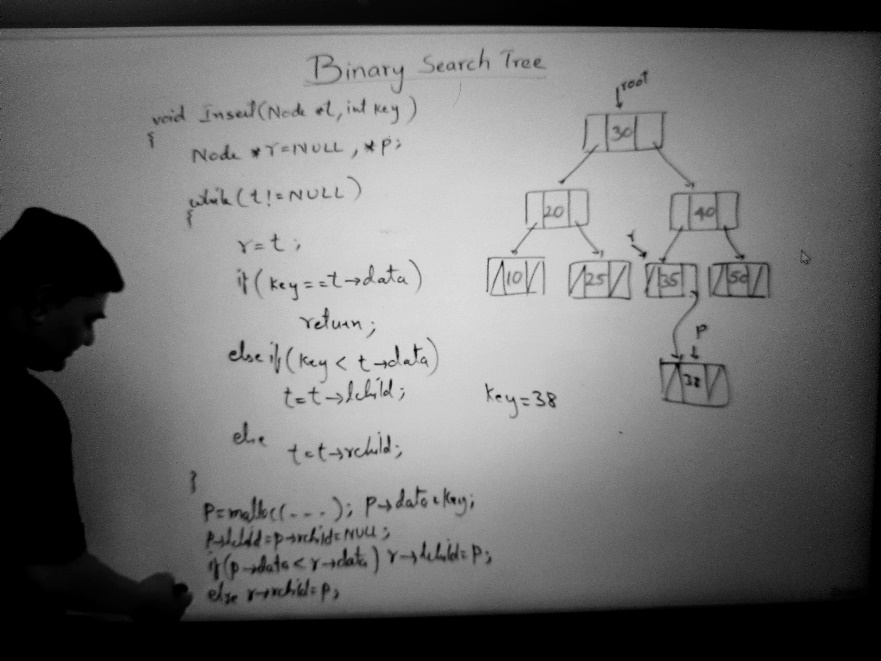 Binary Search Tree
void Insert(Node *t, int key)
{
Node *r=NULL, *p;
while(t!=NULL)
{
r=t;
if(key==t→data)
return;
else if(key < t→data)
t=t→lchild;
else
t=t→rchild;
}
P=malloc(---); p→data=key;
p→lchild=p→rchild=NULL;
if(p→data<r→data) r→lchild=p;
else r→rchild=p;
root
30
20
40
r
10
25
35
50
p
38
key=38